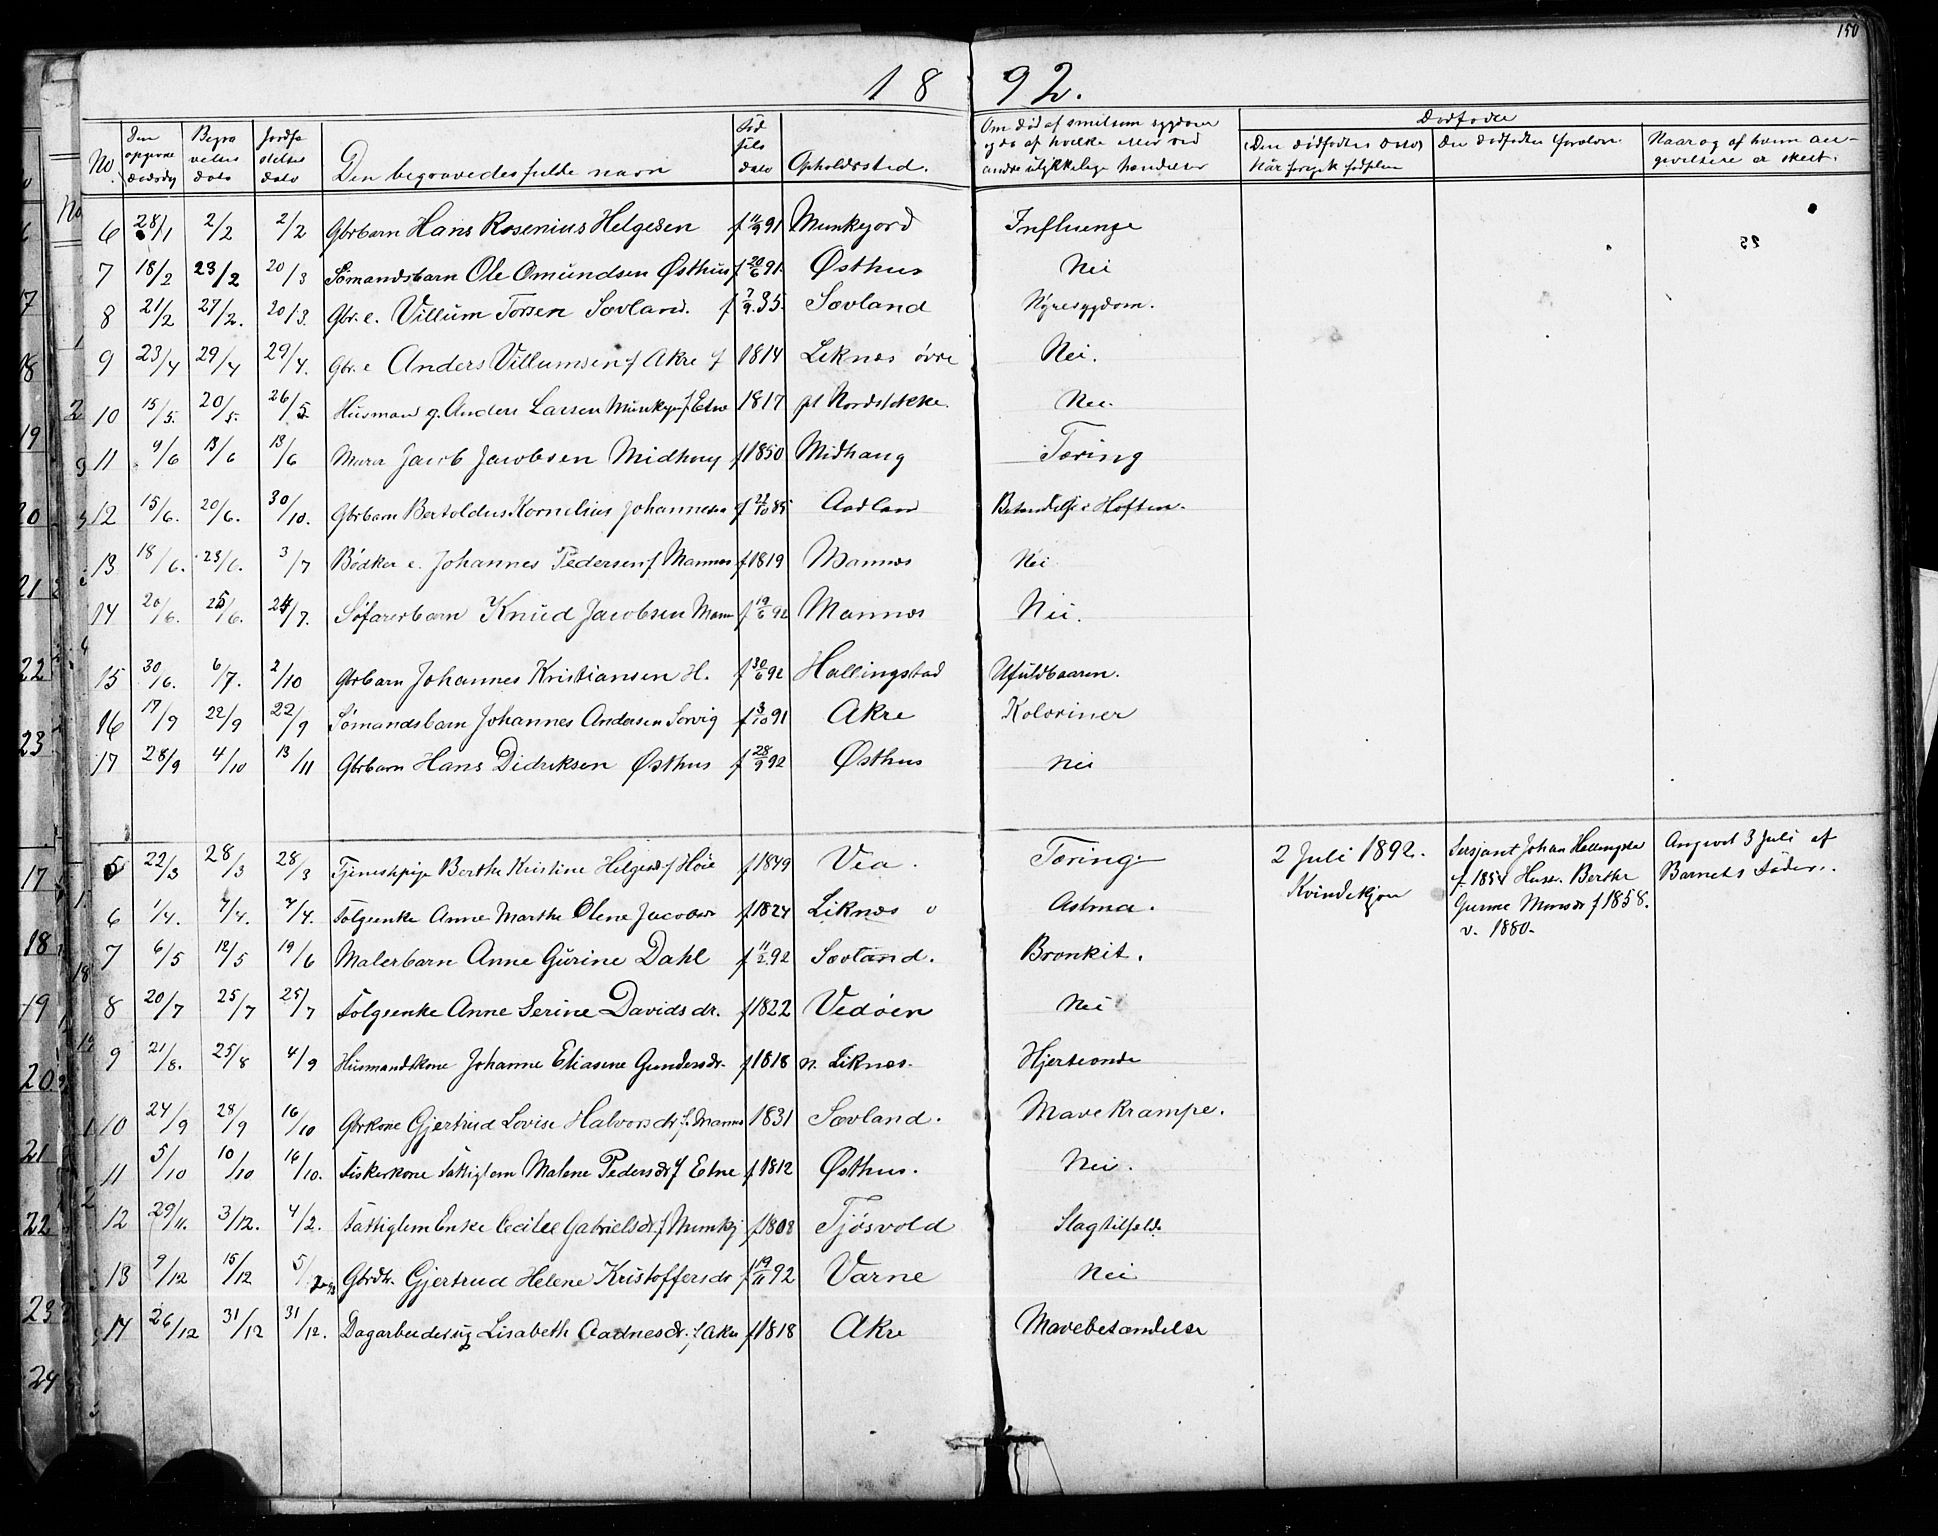 150
1892.
No.
Den opgivne dødsdag
Begravelses dato
Jordfæstelses dato
Den begravedes fulde navn
Fødselsdato
Opholdssted.
Om død af smitsom sygdom og da af hvilke eller ved andre ulykkelige hændelser
Dødfødte
Når foregik fødselen
Den dødfødtes forældre
Naar og af hvem angivelsen er skeet.
6 28/1 2/2 2/2 Gbrbarn Hans Rosenius Helgesen f 11/9 91 Munkejord Influenze
7 18/2 23/2 20/3 Sømandsbarn Ole Omundsen Østhus f 20/6 91. Østhus Nei
8 21/2 27/2. 20/3. Gbr. e. Villum Torsen Sævland. f 7/9. 35. Sævland Nyresygdom.
9 23/4 29/4 29/4. Gbr. e Anders Villumsen f Akre f 1814 Liknes øvre Nei.
10 15/5. 20/5. 26/5 Husmand g. Anders Larsen Munkejo f. Etne 1817 pl Nordstokke. Nei.
11 9/6 13/6 13/6 Murer Jacob Jacobsen Midhaug f 1850 Midhaug Tæring
12 15/6. 20/6. 30/10. Gbrbarn Bertoldus Kornelius Johannesen f 21/10 85 Aadland Betændelse i Hoften.
13 18/6. 23/6. 3/7 Bødker e. Johannes Pedersen f Mannes f 1819 Mannes Nei
14 20/6. 25/6. 24/7. Søfarerbarn Knud Jacobsen Mann f 19/6 92 Mannes Nei.
15 30/6. 6/7. 2/10 Gbrbarn Johannes Kristiansen H. f 30/6 92 Hallingstad Ufuldbaaren.
16 17/9 22/9 22/9 Sømandsbarn Johannes Andersen Sørvig f 3/10 91 Akre Koloriner
17 28/9 4/10 13/11 Gbrbarn Hans Didriksen Østhus f 28/9 92 Østhus Nei
5 22/3 28/3 28/3 Tjenestpige Berthe Kristine Helgesd f Høie f 1849 Vea. Tæring. 2 Juli 1892. Kvindekjøn Sersjant Johan Hallingsta f. 1854 Hust. Berthe Gurine Monsdr f 1858. v. 1880. Angivet 3 Juli af Barnets Fader.
6 1/4. 7/4. 7/4. Folgeenke Anne Marthe Olene Jacobsdr f 1824 Liknes ø Astma.
7 6/5 12/5 19/6 Malerbarn Anne Gurine Dahl f 11/2 92 Sævland. Bronkit.
8 20/7 25/7 25/7 Folgeenke Anne Serine Davidsdr. f 1822 Vedøen Nei
9 21/8. 25/8 4/9 Husmandskone Johanne Eliasene Gundersdr. f 1818 n. Liknes. Hjerteonde
10 24/9 28/9 16/10 Gbrkone Gjertrud Lovise Halvorsdr f. Mannes 1831 Sævland. Mavekrampe.
11 5/10 10/10 16/10. Fiskerkone Fattiglem Malene Pedersdr f Etne f 1812 Østhus. Nei.
12 29/11. 3/12. 4/2. Fattiglem Enke Cecilie Gabrielsdr f Munkj f 1808 Tjøsvold Slagtilfælde
13 9/12 15/12 5/2 93 Gbrdtr. Gjertrud Helene Kristoffersdr f 19/11 92 Varne Nei
14 26/12 31/12 31/12. Dagarbeiderug Lisabeth Aadnesdr. f Akre f 1818 Akre Mavebetændelse